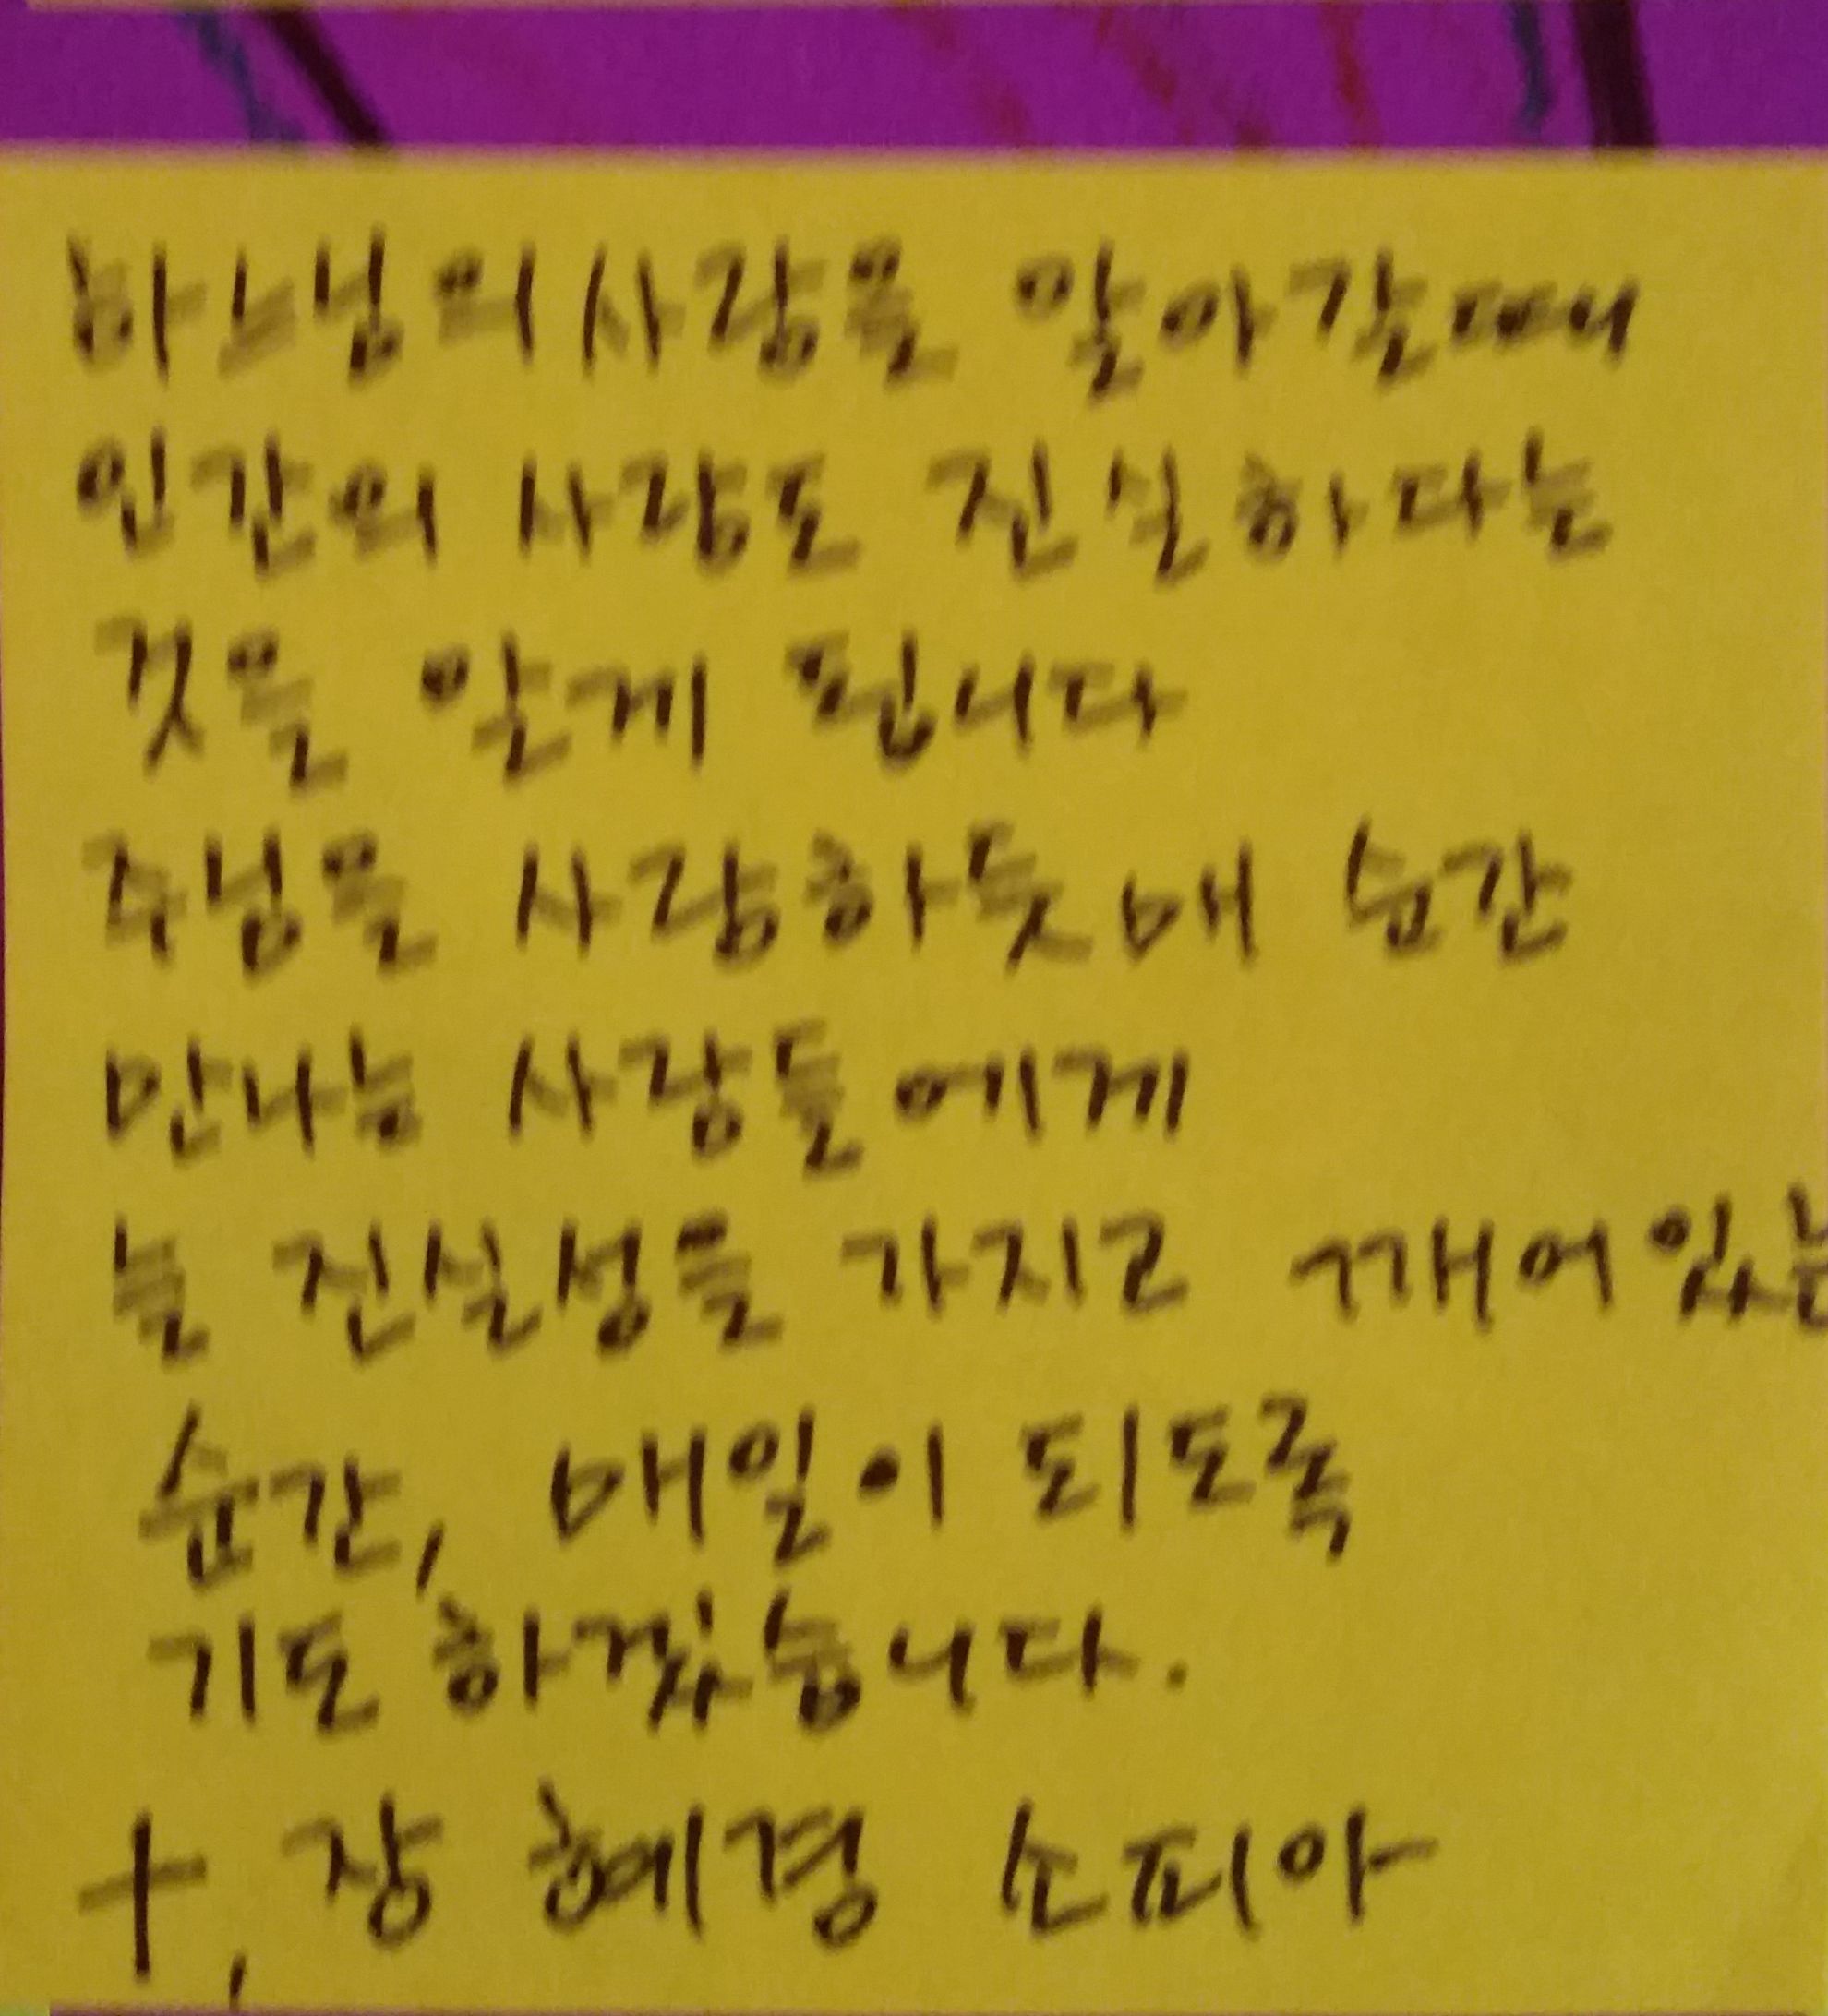 하느님의 사랑을 알아갈때
인간의 사랑도 진실하다는
것을 알게 됩니다
주님을 사랑하듯 매 순간
만나는 사람들에게
늘 진실성을 가지고 깨어있는
순간, 매일이 되도록
기도 하겠습니다.
+, 장 혜경 소피아